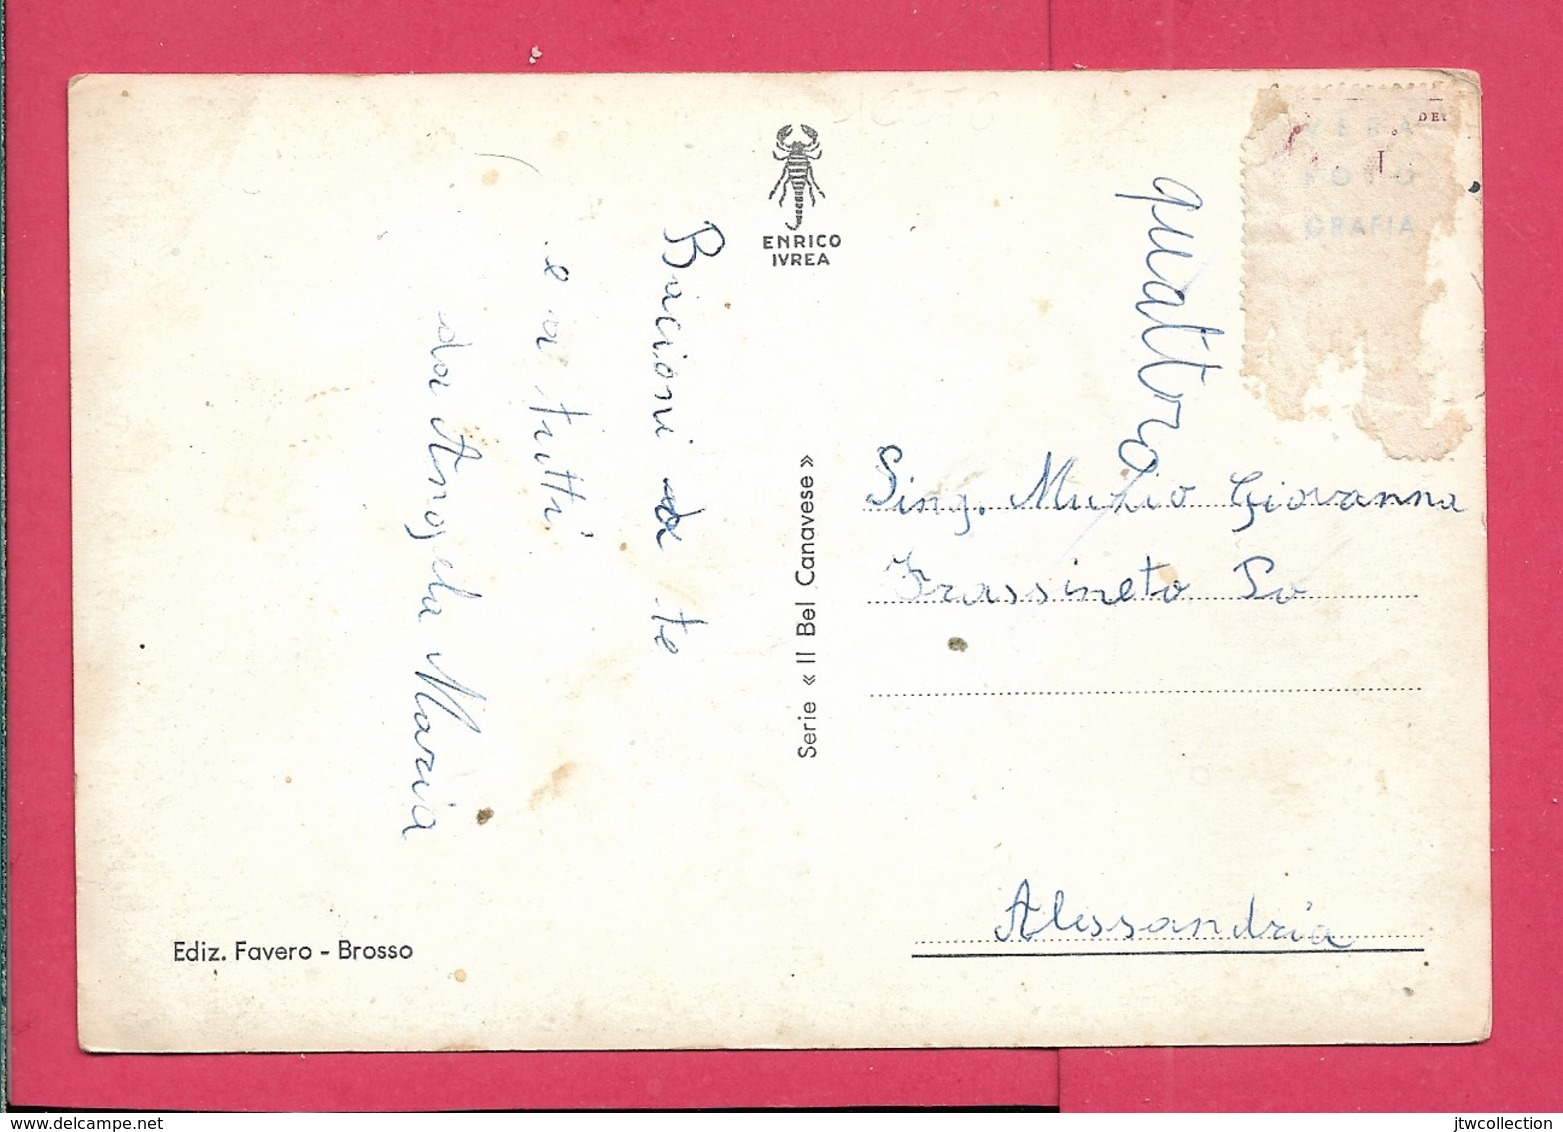 Bacioni a te
e a tutti
da Angela Maria
Ediz. Favero - Brosso
ENRICO
IVREA
Serie « Il Bel Canavese »
quattro
VERA
FOTO
GRAFIA
DEL
Sing. Muzio Giovanna
Frassineto Po
Alessandria
jtwcollection
www.delcampe.net